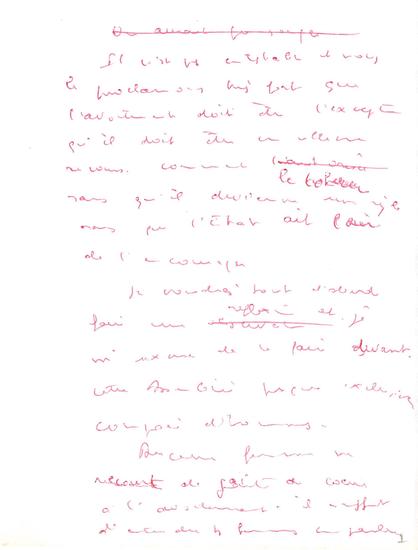 Il n'est pas et nous
le proclamons très fort que
l'avortement doit être l'except
qu'il doit être un ultime
recours. Comment
le tolérer
sans qu'il devienne un
sans que l'Etat ait l'air
de l'encourager
Je voudrais tout d'abord
réflexion et je
faire une
m'excuse de le faire devant
cette Assemblée presque exclusiv
composée d'hommes.
Aucune femme ne
recourt de gaité de coeur
à l'avortement. il suffit
d'entendre les femmes en parler